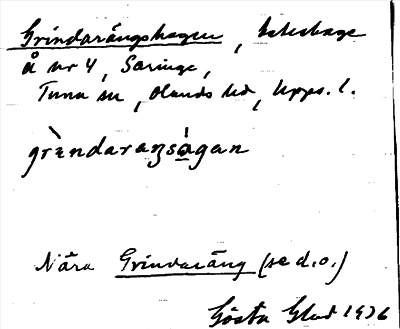 Grindarängshagen, beteshage
å nr 4, Saringe,
Tuna sn, Olands hd, Upps. l.
grὲndaraŋsàgan
Nära Grindaräng (se d.o.)
Gösta Glad 1936